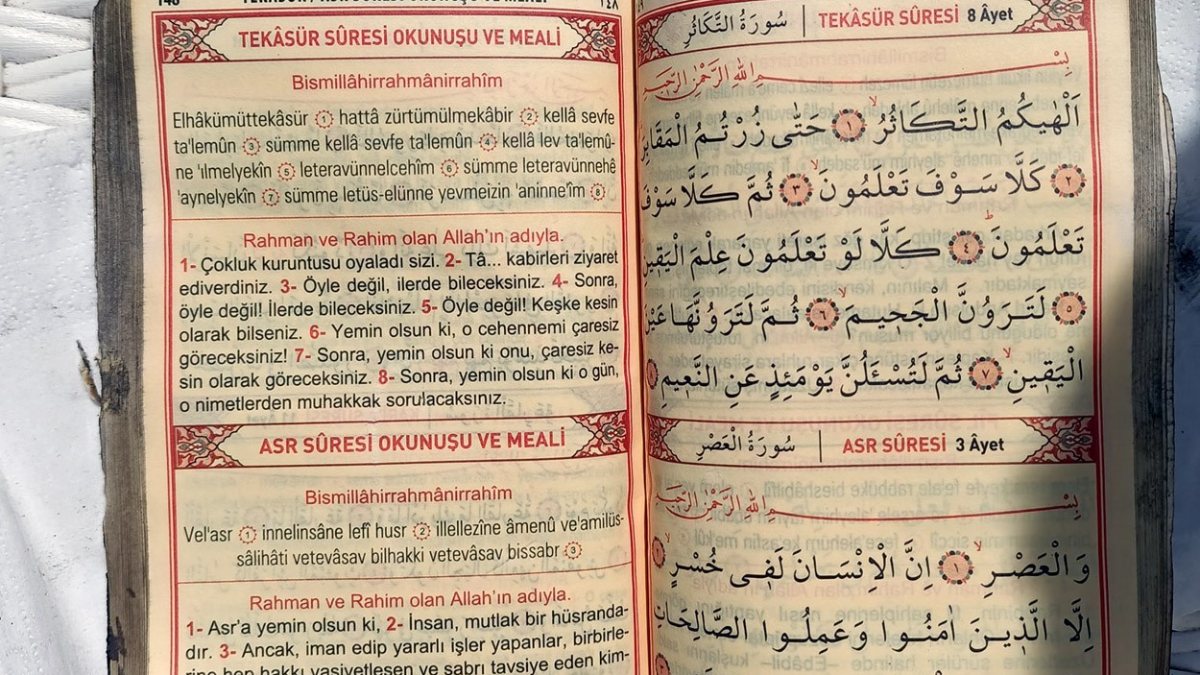 TEKÂSÜR SÛRESİ OKUNUŞU VE MEALİ
Bismillâhirrahmânirrahîm
Elhâkümüttekâsür 1 hattâ zürtümülmekâbir 2 kellâ sevfe
ta'lemûn 3 sümme kellâ sevfe ta'lemûn 4 kellâ lev ta'lemû-
ne 'ılmelyekîn 5 leteravünnelcehîm 6 sümme leteravünnehê
'aynelyekîn 7 sümme letüs-elünne yevmeizin 'aninne'îm 8
Rahman ve Rahim olan Allah'ın adıyla.
1- Çokluk kuruntusu oyaladı sizi. 2- Tâ... kabirleri ziyaret
ediverdiniz. 3- Öyle değil, ilerde bileceksiniz. 4- Sonra,
öyle değil! İlerde bileceksiniz. 5- Öyle değil! Keşke kesin
olarak bilseniz. 6- Yemin olsun ki, o cehennemi çaresiz
göreceksiniz! 7- Sonra, yemin olsun ki onu, çaresiz ke-
sin olarak göreceksiniz. 8- Sonra, yemin olsun ki o gün,
o nimetlerden muhakkak sorulacaksınız.
ASR SÛRESİ OKUNUŞU VE MEALİ
Bismillâhirrahmânirrahîm
Vel'asr 1 innelinsâne lefî husr 2 illellezîne âmenû ve'amilüs-
sâlihâti vetevâsav bilhakki vetevâsav bissabr 3
Rahman ve Rahim olan Allah'ın adıyla.
1- Asr'a yemin olsun ki, 2- İnsan, mutlak bir hüsranda-
dır. 3- Ancak, iman edip yararlı işler yapanlar, birbirle-
rine hep hakkı vasiyetleşen ve sabrı tavsiye eden kim-
سُورَةُ التَّكَاثُرِ | TEKÂSÜR SÛRESİ 8 Âyet
بِسْمِ اللهِ الرَّحْمٰنِ الرَّحِيمِ
اَلْهٰيكُمُ التَّكَاثُرُ ﴿١﴾ حَتّٰى زُرْتُمُ الْمَقَابِرَ
﴿٢﴾ كَلَّا سَوْفَ تَعْلَمُونَ ﴿٣﴾ ثُمَّ كَلَّا سَوْفَ
تَعْلَمُونَ ﴿٤﴾ كَلَّا لَوْ تَعْلَمُونَ عِلْمَ الْيَقِينِ
﴿٥﴾ لَتَرَوُنَّ الْجَحِيمَ ﴿٦﴾ ثُمَّ لَتَرَوُنَّهَا عَيْنَ
الْيَقِينِ ﴿٧﴾ ثُمَّ لَتُسْـَٔلُنَّ يَوْمَئِذٍ عَنِ النَّعِيمِ
سُورَةُ الْعَصْرِ | ASR SÛRESİ 3 Âyet
بِسْمِ اللهِ الرَّحْمٰنِ الرَّحِيمِ
وَالْعَصْرِ ﴿١﴾ اِنَّ الْاِنْسَانَ لَفِى خُسْرٍ ﴿٢﴾
اِلَّا الَّذِينَ اٰمَنُوا وَعَمِلُوا الصَّالِحَاتِ